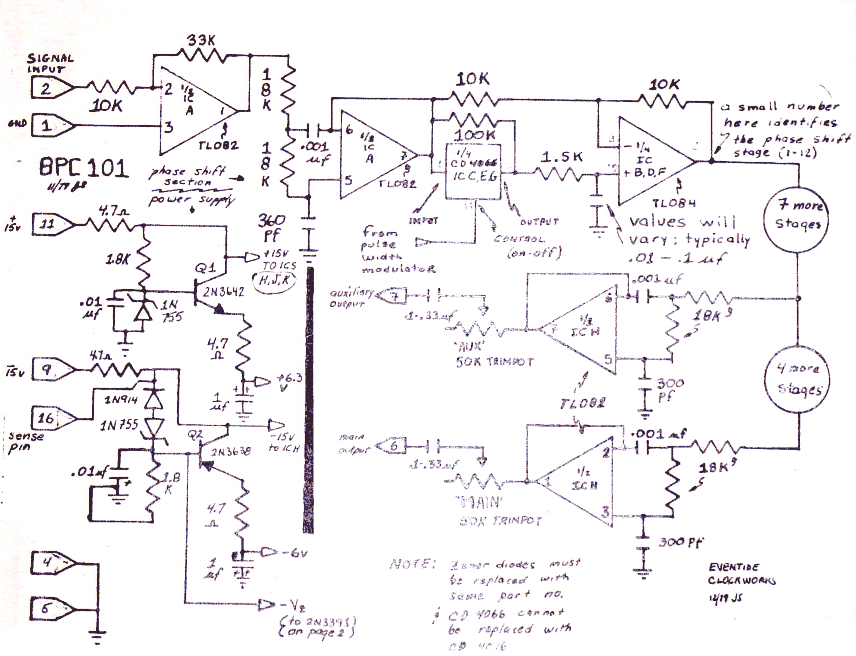 SIGNAL
INPUT
2
10K
33K
2
3
1/2
IC
A
1
TL082
1
GND
BPC 101
11/79 JS
phase shift
section
power supply
18K
18K
.001
µf
360
Pf
6
5
1/2
IC
A
7
TL082
10K
100K
1/4
CD 4066
IC C,E,G
INPUT
OUTPUT
CONTROL
(on-off)
From
pulse
width
modulator
1.5K
10K
1/4
IC
B,D,F
TL084
a small number
here identifies
the phase shift
stage (1-12)
values will
vary; typically
.01 - .1 µf
7 more
stages
4 more
stages
+
15v
11
4.7Ω
1.8K
Q1
2N3642
.01
µf
1N
755
+15V
TO ICS
(H,J,K)
4.7
Ω
+6.3
V
1
µf
-
15v
9
47Ω
16
sense
pin
1N914
1N755
Q2
2N3638
-15V
to ICH
.01µf
1.8
K
4.7
Ω
-6V
1
µf
4
5
-V2
(to 2N3391)
(on page 2)
auxiliary
output
7
.1-.33µf
"AUX"
50K TRIMPOT
7
1/2
ICH
6
5
.001µf
18K
5
300
Pf
TL082
main
output
6
.1-.33µf
"MAIN"
50K TRIMPOT
1
1/2
ICH
2
3
.001µf
18K
5
300Pf
NOTE: Zener diodes must
be replaced with
same part no.
CD 4066 cannot
be replaced with
CD 4016
EVENTIDE
CLOCKWORKS
12/79 JS